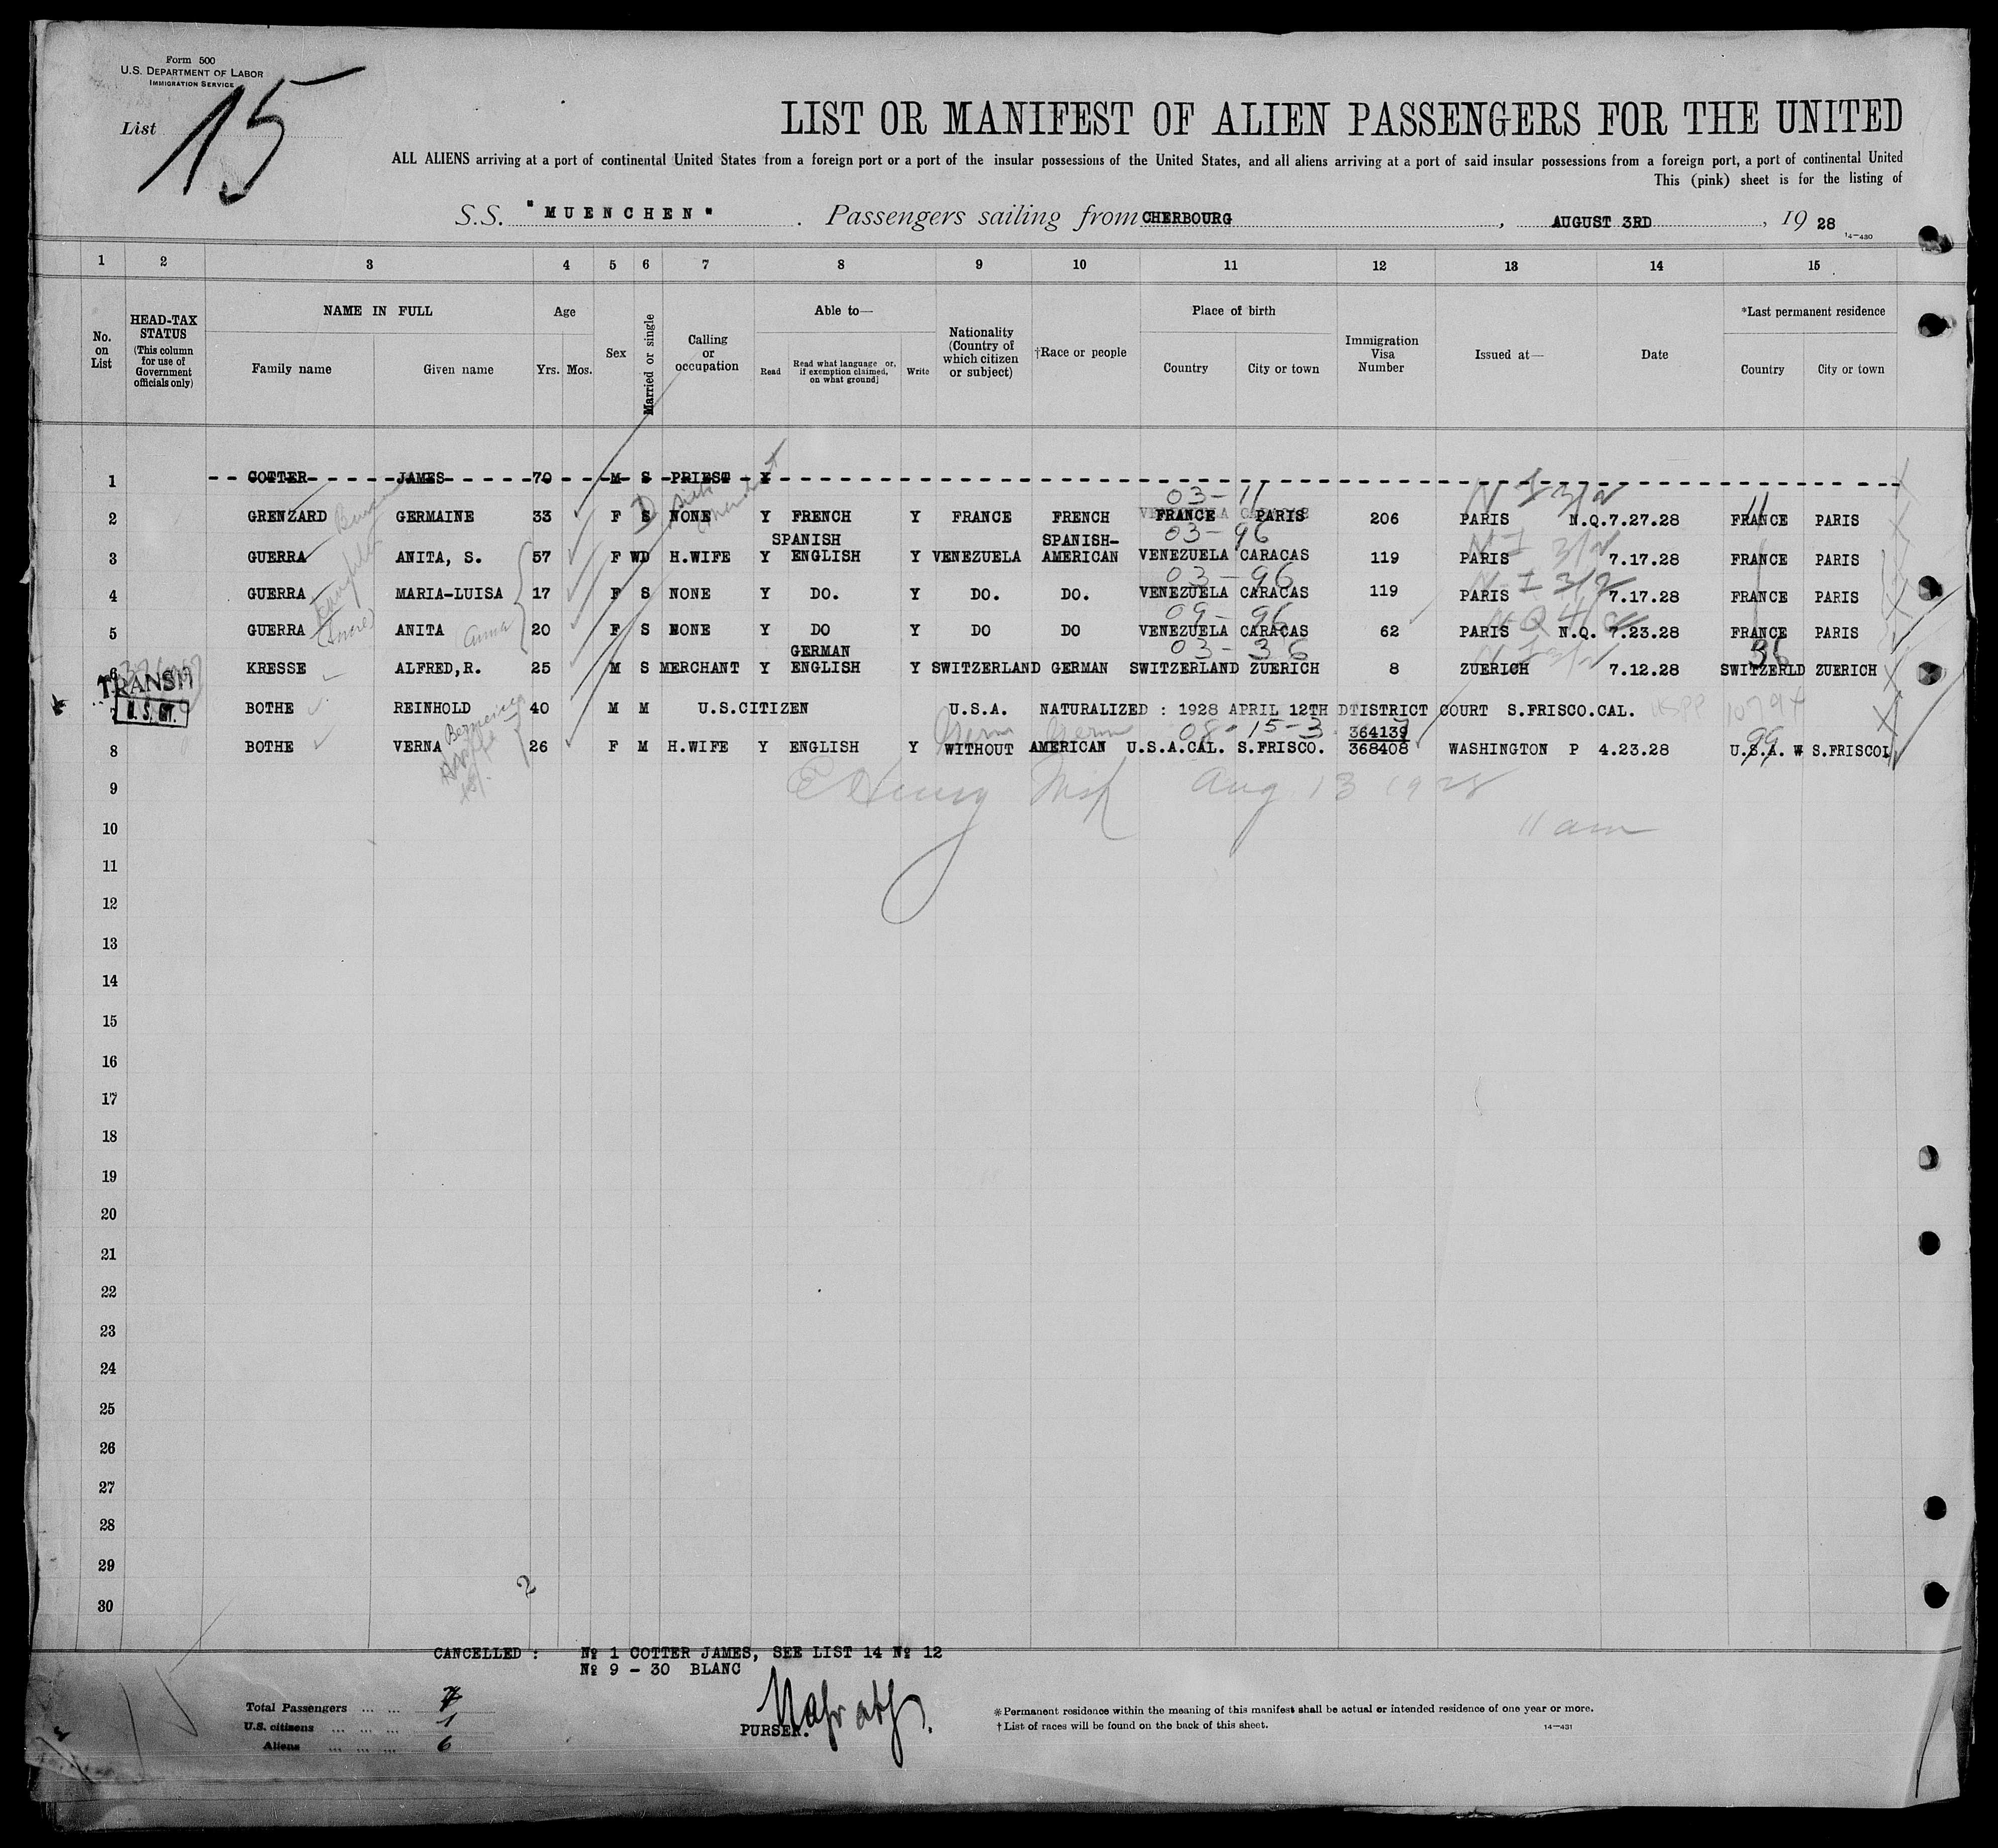 Form 500
U.S. DEPARTMENT OF LABOR
IMMIGRATION SERVICE
List 15
LIST OR MANIFEST OF ALIEN PASSENGERS FOR THE UNITED
ALL ALIENS arriving at a port of continental United States from a foreign port or a port of the insular possessions of the United States, and all aliens arriving at a port of said insular possessions from a foreign port, a port of continental United
This (pink) sheet is for the listing of
S.S. "MUENCHEN". Passengers sailing from CHERBOURG, AUGUST 3RD, 19 28
14-430
1 2 3 4 5 6 7 8 9 10 11 12 13 14 15
No. on List
HEAD-TAX STATUS
(This column for use of Government officials only)
NAME IN FULL
Family name Given name
Age
Yrs. Mos.
Sex
Married or single
Calling or occupation
Able to—
Read Read what language or, if exemption claimed, on what ground] Write
Nationality (Country of which citizen or subject)
†Race or people
Place of birth
Country City or town
Immigration Visa Number
Issued at—
Date
*Last permanent residence
Country City or town
1 COTTER JAMES 70 M S PRIEST Y
03-11
2 GRENZARD GERMAINE 33 F S D NONE Y FRENCH Y FRANCE FRENCH FRANCE PARIS 206 PARIS N.Q. 7.27.28 FRANCE PARIS
SPANISH SPANISH- 03-96
3 GUERRA ANITA, S. 57 F WD H.WIFE Y ENGLISH Y VENEZUELA AMERICAN VENEZUELA CARACAS 119 PARIS 7.17.28 FRANCE PARIS
03-96
4 GUERRA MARIA-LUISA 17 F S NONE Y DO. Y DO. DO. VENEZUELA CARACAS 119 PARIS 7.17.28 FRANCE PARIS
09-96
5 GUERRA ANITA Anna 20 F S NONE Y DO Y DO DO VENEZUELA CARACAS 62 PARIS N.Q. 7.23.28 FRANCE PARIS
GERMAN 03-36 36
6 KRESSE ALFRED,R. 25 M S MERCHANT Y ENGLISH Y SWITZERLAND GERMAN SWITZERLAND ZUERICH 8 ZUERICH 7.12.28 SWITZERLD ZUERICH
TRANSIT
7 BOTHE REINHOLD 40 M M U.S.CITIZEN U.S.A. NATURALIZED : 1928 APRIL 12TH DTISTRICT COURT S.FRISCO.CAL.
Germ Germ 08-15-3 364139 99
8 BOTHE VERNA 26 F M H.WIFE Y ENGLISH Y WITHOUT AMERICAN U.S.A.CAL. S.FRISCO. 368408 WASHINGTON P 4.23.28 U.S.A. S.FRISCO
9 Aug 13 1928
10 11 am
11
12
13
14
15
16
17
18
19
20
21
22
23
24
25
26
27
28
29
30
2
CANCELLED : № 1 COTTER JAMES, SEE LIST 14 № 12
№ 9 - 30 BLANC
Total Passengers ... ... 7
U.S. citizens ... ... ... 1
Aliens ... ... ... 6
PURSER.
*Permanent residence within the meaning of this manifest shall be actual or intended residence of one year or more.
†List of races will be found on the back of this sheet.
14-431